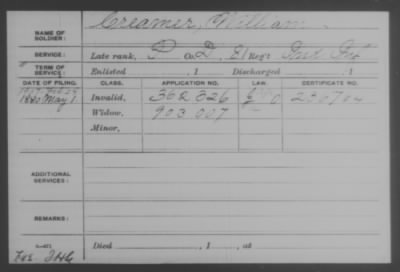 NAME OF SOLDIER: Creamer, William
SERVICE: Late rank, P Co. D, 81 Reg't Inf
TERM OF SERVICE: Enlisted , 1 Discharged , 1
DATE OF FILING. CLASS. APPLICATION NO. LAW. CERTIFICATE NO.
1880 May 1. Invalid, 362 826 230704
Widow, 903 007
Minor,
ADDITIONAL SERVICES:
REMARKS:
Died , 1 , at